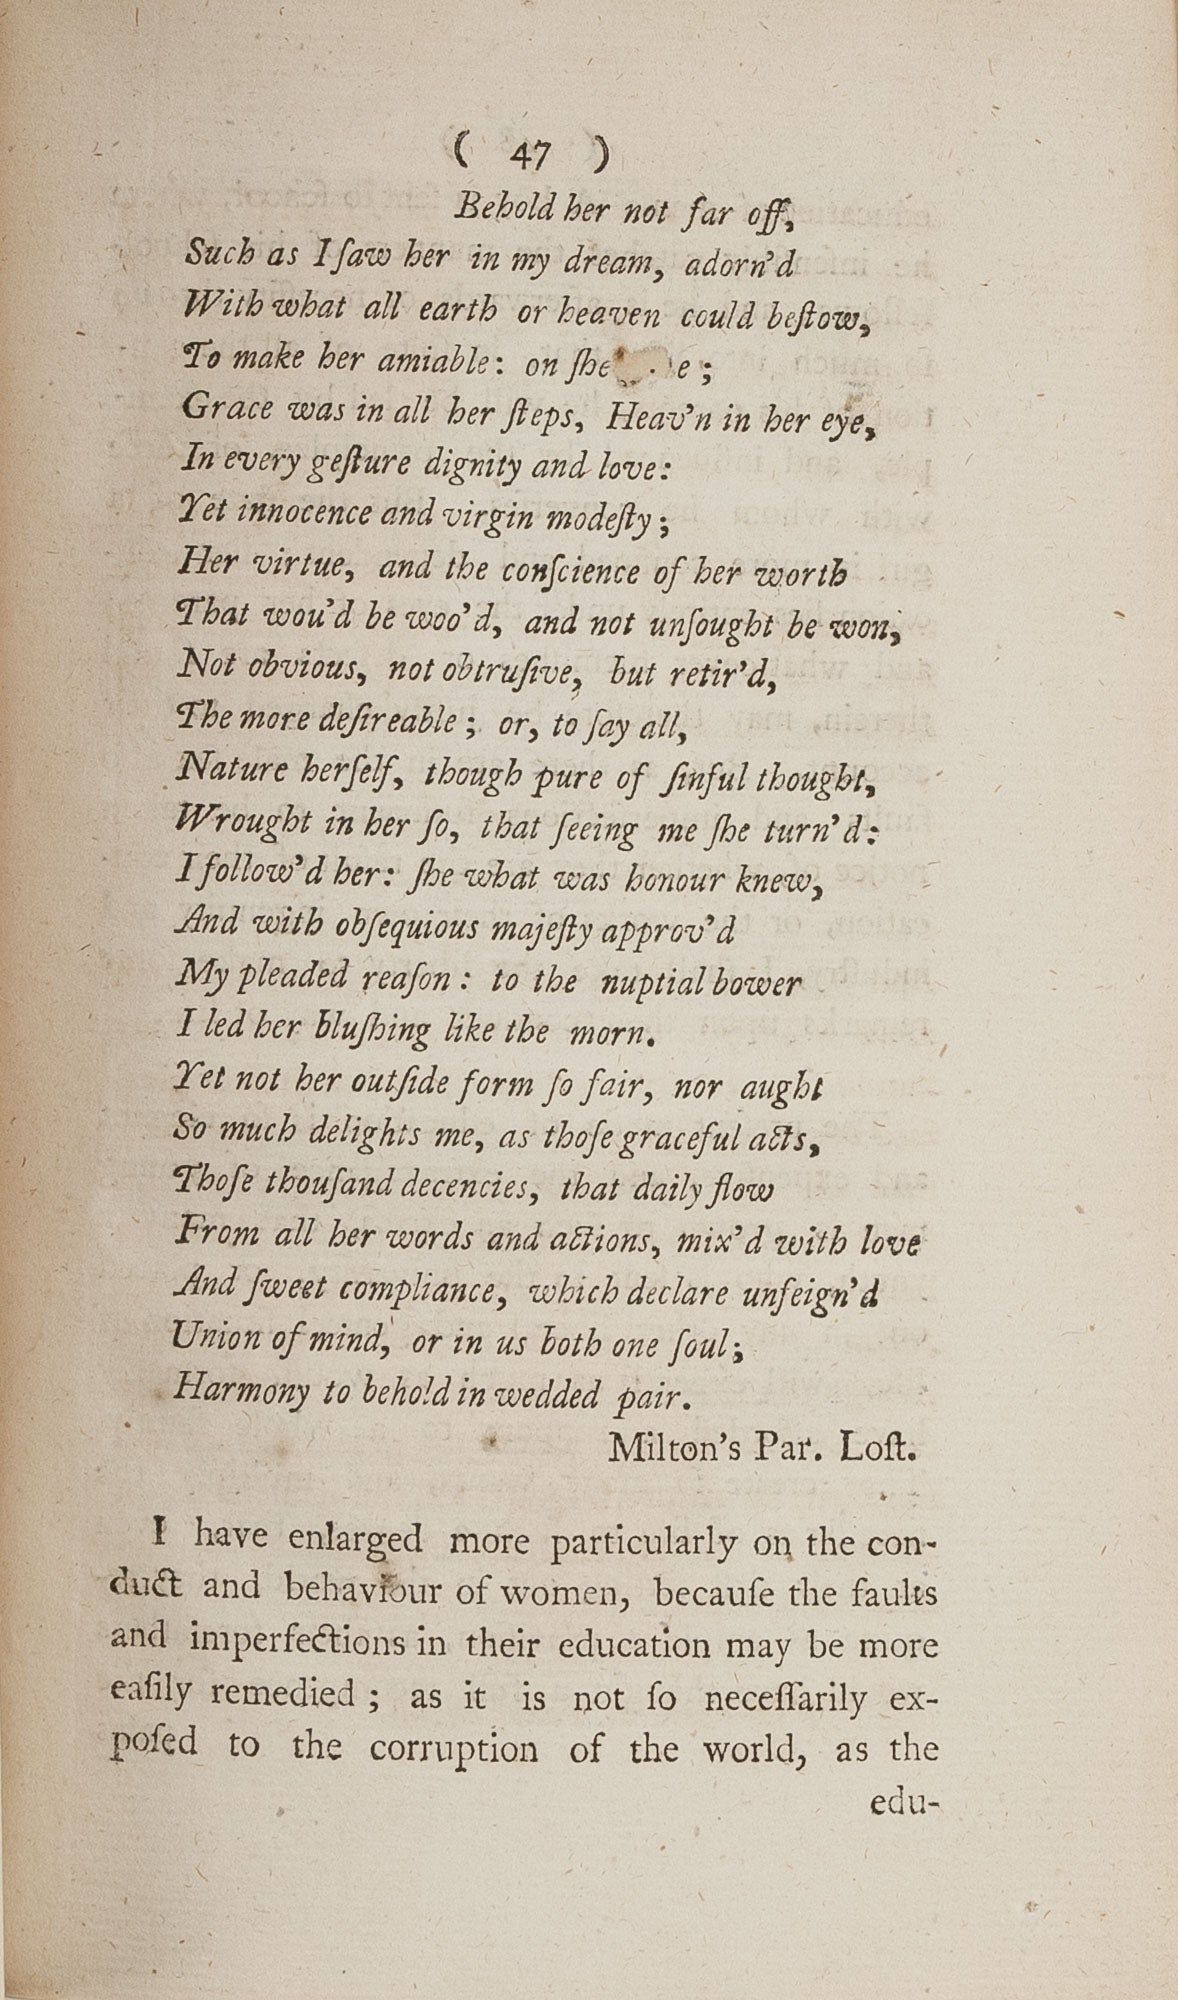 ( 47 )
Behold her not far off,
Such as I ſaw her in my dream, adorn'd
With what all earth or heaven could beſtow,
To make her amiable: on ſhe e;
Grace was in all her ſteps, Heav'n in her eye,
In every geſture dignity and love:
Yet innocence and virgin modeſty;
Her virtue, and the conſcience of her worth
That wou'd be woo'd, and not unſought be won,
Not obvious, not obtruſive, but retir'd,
The more deſireable; or, to ſay all,
Nature herſelf, though pure of ſinful thought,
Wrought in her ſo, that ſeeing me ſhe turn'd:
I follow'd her: ſhe what was honour knew,
And with obſequious majeſty approv'd
My pleaded reaſon: to the nuptial bower
I led her bluſhing like the morn.
Yet not her outſide form ſo fair, nor aught
So much delights me, as thoſe graceful acts,
Thoſe thouſand decencies, that daily flow
From all her words and actions, mix'd with love
And ſweet compliance, which declare unfeign'd
Union of mind, or in us both one ſoul;
Harmony to behold in wedded pair.
Milton's Par. Loſt.
I have enlarged more particularly on the con-
duct and behaviour of women, becauſe the faults
and imperfections in their education may be more
eaſily remedied; as it is not ſo neceſſarily ex-
poſed to the corruption of the world, as the
edu-